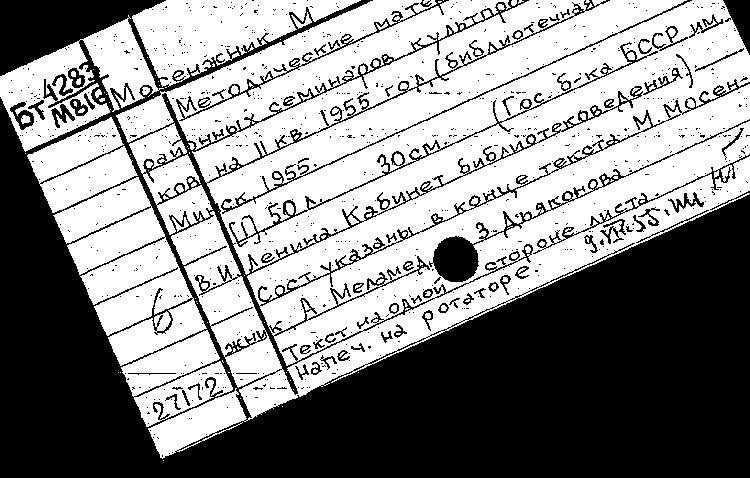 Бт 4283
М816
Мосенжник, М
Методические мате
районных семинаров культпро
ков на II кв. 1955 год, (библиотечная
Минск, 1955.
[1], 50 л. 30 см. (Гос б-ка БССР им.
В.И. Ленина. Кабинет библиотековедения)
Сост. указаны в конце текста: М. Мосен-
жник, А. Меламед, З. Дьяконова.
Текст на одной стороне листа.
Напеч. на ротаторе.
6
27172